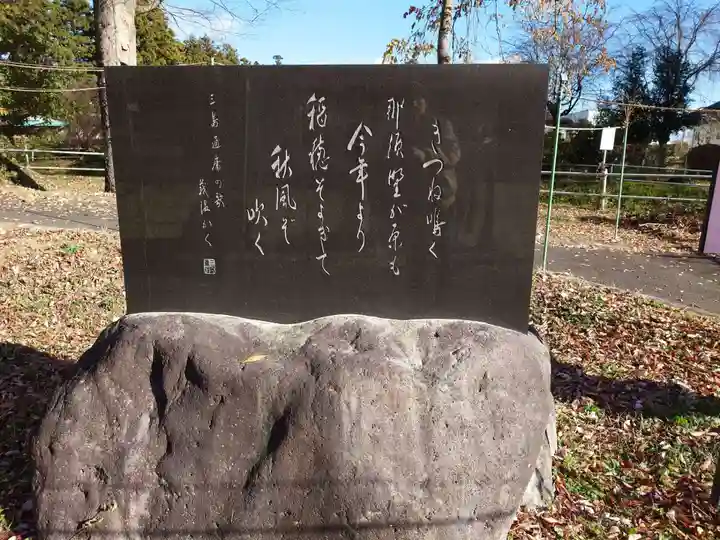 きつね鳴く
那須野が原も
今年より
稲穂そよぎて
秋風ぞ
吹く
三島通庸の歌
義温かく